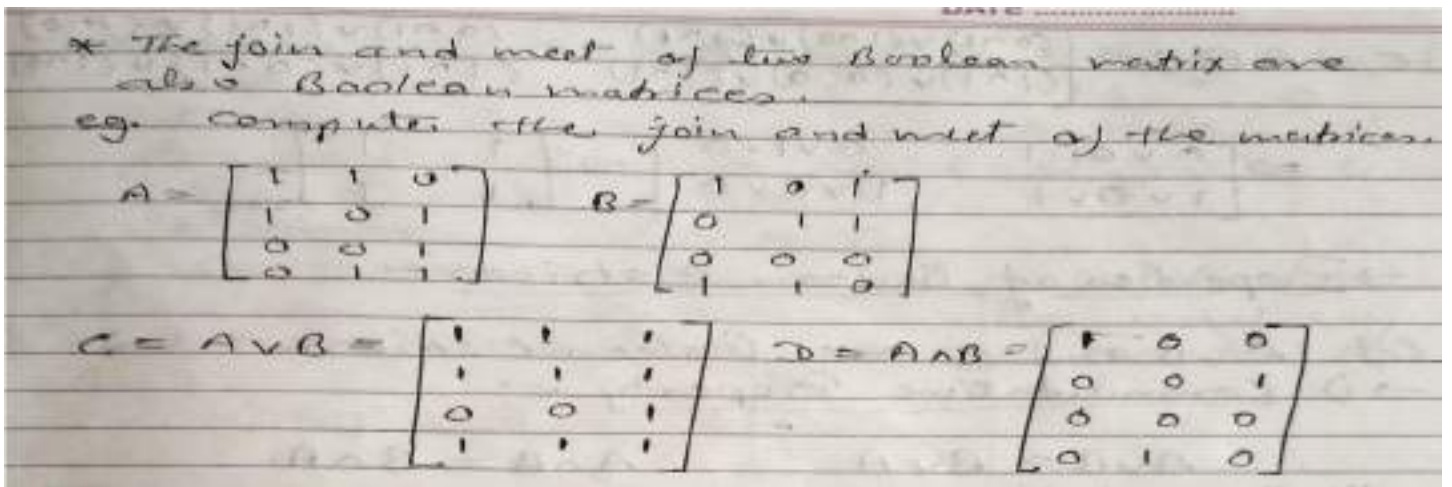 DATE ........................
* The join and meet of two Boolean matrix are
also Boolean matrices.
eg. Compute the join and meet of the matrices.
A = [ 1 1 0 B = [ 1 0 1
1 0 1 0 1 1
0 0 1 0 0 0
0 1 1 ] 1 1 0 ]
C = A ∨ B = [ 1 1 1 D = A ∧ B = [ 1 0 0
1 1 1 0 0 1
0 0 1 0 0 0
1 1 1 ] 0 1 0 ]